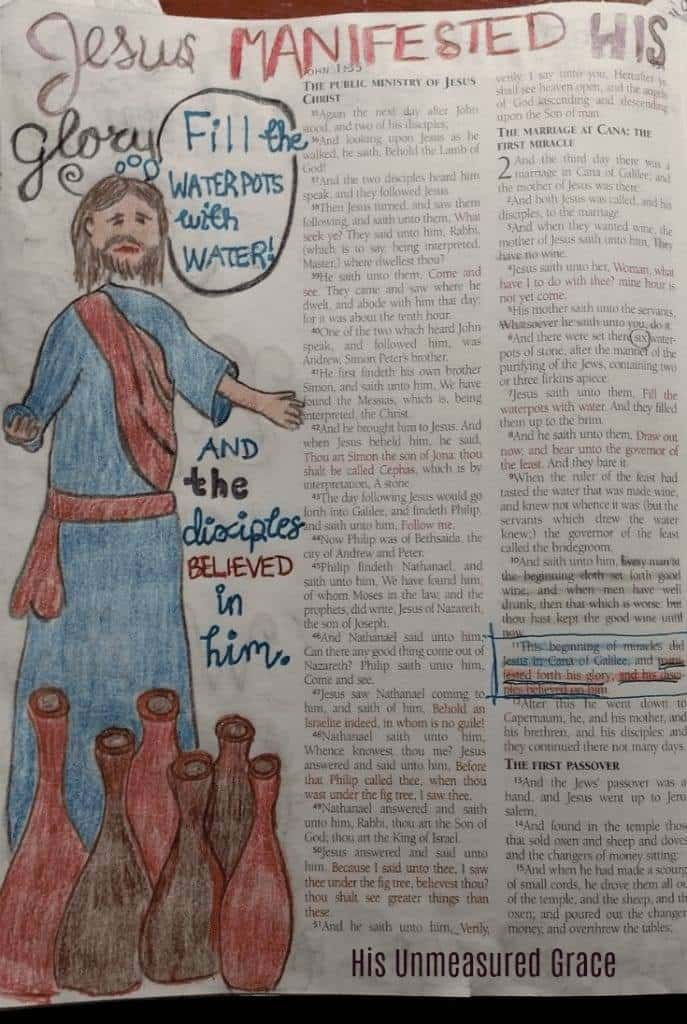 Jesus MANIFESTED HIS
glory
Fill the
WATERPOTS
with
WATER!
AND
the
disciples
BELIEVED
in
him.
JOHN 1:35
THE PUBLIC MINISTRY OF JESUS
CHRIST
35Again the next day after John
stood, and two of his disciples;
36And looking upon Jesus as he
walked, he saith, Behold the Lamb of
God!
37And the two disciples heard him
speak, and they followed Jesus.
38Then Jesus turned, and saw them
following, and saith unto them, What
seek ye? They said unto him, Rabbi,
(which is to say, being interpreted,
Master,) where dwellest thou?
39He saith unto them, Come and
see. They came and saw where he
dwelt, and abode with him that day:
for it was about the tenth hour.
40One of the two which heard John
speak, and followed him, was
Andrew, Simon Peter's brother.
41He first findeth his own brother
Simon, and saith unto him, We have
found the Messias, which is, being
interpreted, the Christ.
42And he brought him to Jesus. And
when Jesus beheld him, he said,
Thou art Simon the son of Jona: thou
shalt be called Cephas, which is by
interpretation, A stone.
43The day following Jesus would go
forth into Galilee, and findeth Philip,
and saith unto him, Follow me.
44Now Philip was of Bethsaida, the
city of Andrew and Peter.
45Philip findeth Nathanael, and
saith unto him, We have found him,
of whom Moses in the law, and the
prophets, did write, Jesus of Nazareth,
the son of Joseph.
46And Nathanael said unto him,
Can there any good thing come out of
Nazareth? Philip saith unto him,
Come and see.
47Jesus saw Nathanael coming to
him, and saith of him, Behold an
Israelite indeed, in whom is no guile!
48Nathanael saith unto him,
Whence knowest thou me? Jesus
answered and said unto him, Before
that Philip called thee, when thou
wast under the fig tree, I saw thee.
49Nathanael answered and saith
unto him, Rabbi, thou art the Son of
God; thou art the King of Israel.
50Jesus answered and said unto
him, Because I said unto thee, I saw
thee under the fig tree, believest thou?
thou shalt see greater things than
these.
51And he saith unto him, Verily,
verily, I say unto you, Hereafter ye
shall see heaven open, and the angels
of God ascending and descending
upon the Son of man.
THE MARRIAGE AT CANA: THE
FIRST MIRACLE
2 And the third day there was a
marriage in Cana of Galilee; and
the mother of Jesus was there:
2And both Jesus was called, and his
disciples, to the marriage.
3And when they wanted wine, the
mother of Jesus saith unto him, They
have no wine.
4Jesus saith unto her, Woman, what
have I to do with thee? mine hour is
not yet come.
5His mother saith unto the servants,
Whatsoever he saith unto you, do it.
6And there were set there six water-
pots of stone, after the manner of the
purifying of the Jews, containing two
or three firkins apiece.
7Jesus saith unto them, Fill the
waterpots with water. And they filled
them up to the brim.
8And he saith unto them, Draw out
now, and bear unto the governor of
the feast. And they bare it.
9When the ruler of the feast had
tasted the water that was made wine,
and knew not whence it was: (but the
servants which drew the water
knew;) the governor of the feast
called the bridegroom,
10And saith unto him, Every man at
the beginning doth set forth good
wine; and when men have well
drunk, then that which is worse: but
thou hast kept the good wine until
now.
11This beginning of miracles did
Jesus in Cana of Galilee, and mani-
fested forth his glory; and his disci-
ples believed on him.
12After this he went down to
Capernaum, he, and his mother, and
his brethren, and his disciples: and
they continued there not many days.
THE FIRST PASSOVER
13And the Jews' passover was a
hand, and Jesus went up to Jeru
salem,
14And found in the temple those
that sold oxen and sheep and doves
and the changers of money sitting:
15And when he had made a scourg
of small cords, he drove them all ou
of the temple, and the sheep, and th
oxen; and poured out the changer
money, and overthrew the tables;
His Unmeasured Grace